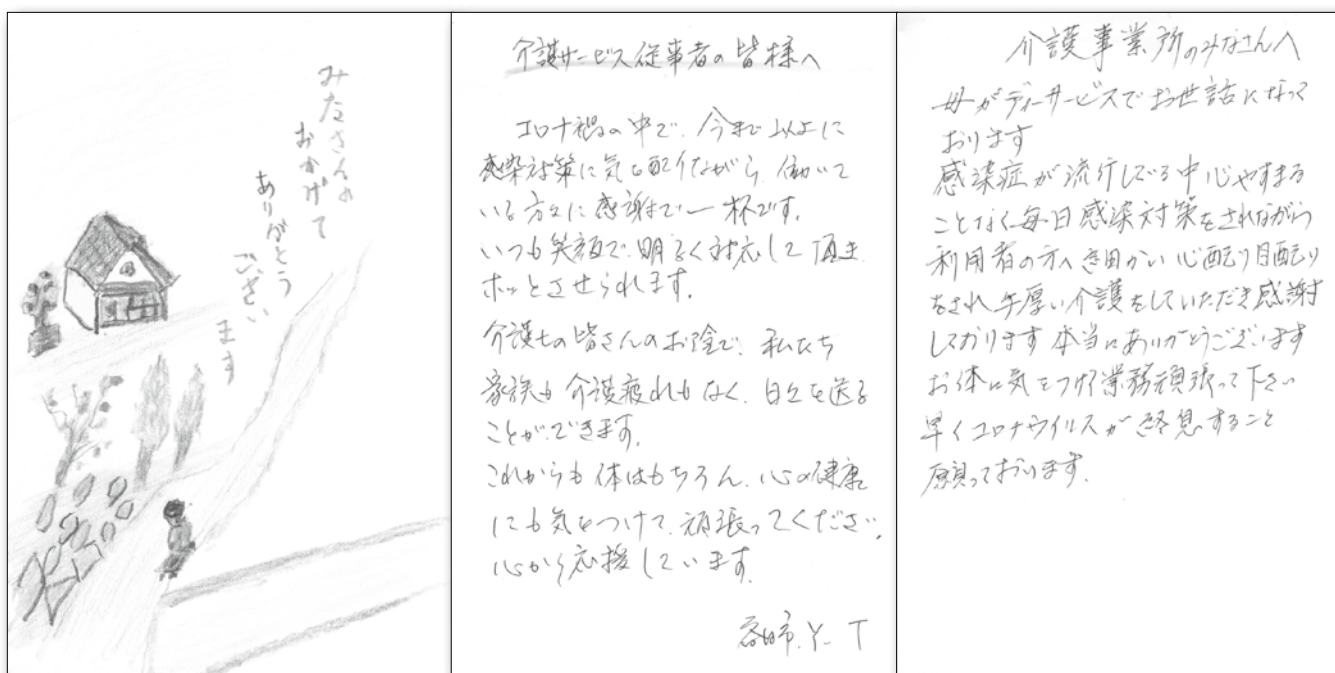 みなさんの
おかげで
ありがとう
ござい
ます
介護サービス従事者の皆様へ
コロナ禍の中で、今まで以上に
感染対策に気を配りながら、働いて
いる方々に感謝で一杯です。
いつも笑顔で、明るく対応して頂き
ホッとさせられます。
介護士の皆さんのお陰で、私たち
家族も介護疲れもなく、日々を送る
ことができます。
これからも体はもちろん、心の健康
にも気をつけて、頑張ってください。
心から応援しています。
市 Y. T
介護事業所のみなさんへ
母がディーサービスでお世話になって
おります
感染症が流行している中心やすまる
ことなく毎日感染対策をされながら
利用者の方へ細かい心配り目配り
をされ手厚い介護をしていただき感謝
しております 本当にありがとうございます
お体に気をつけ業務頑張って下さい
早くコロナウイルスが終息すること
願っております。